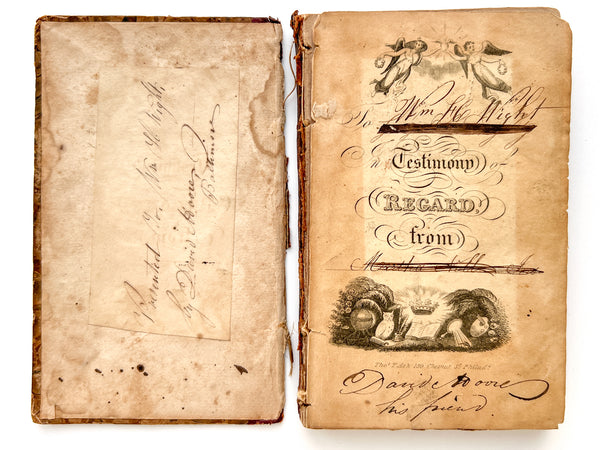 Presented to Wm H Wight,
by David Moore
Baltimore
To Wm H Wight
a Testimony of
REGARD,
from
Martha
Thos. T. Ash 139 Chesnut St. Philada.
David Moore
his friend